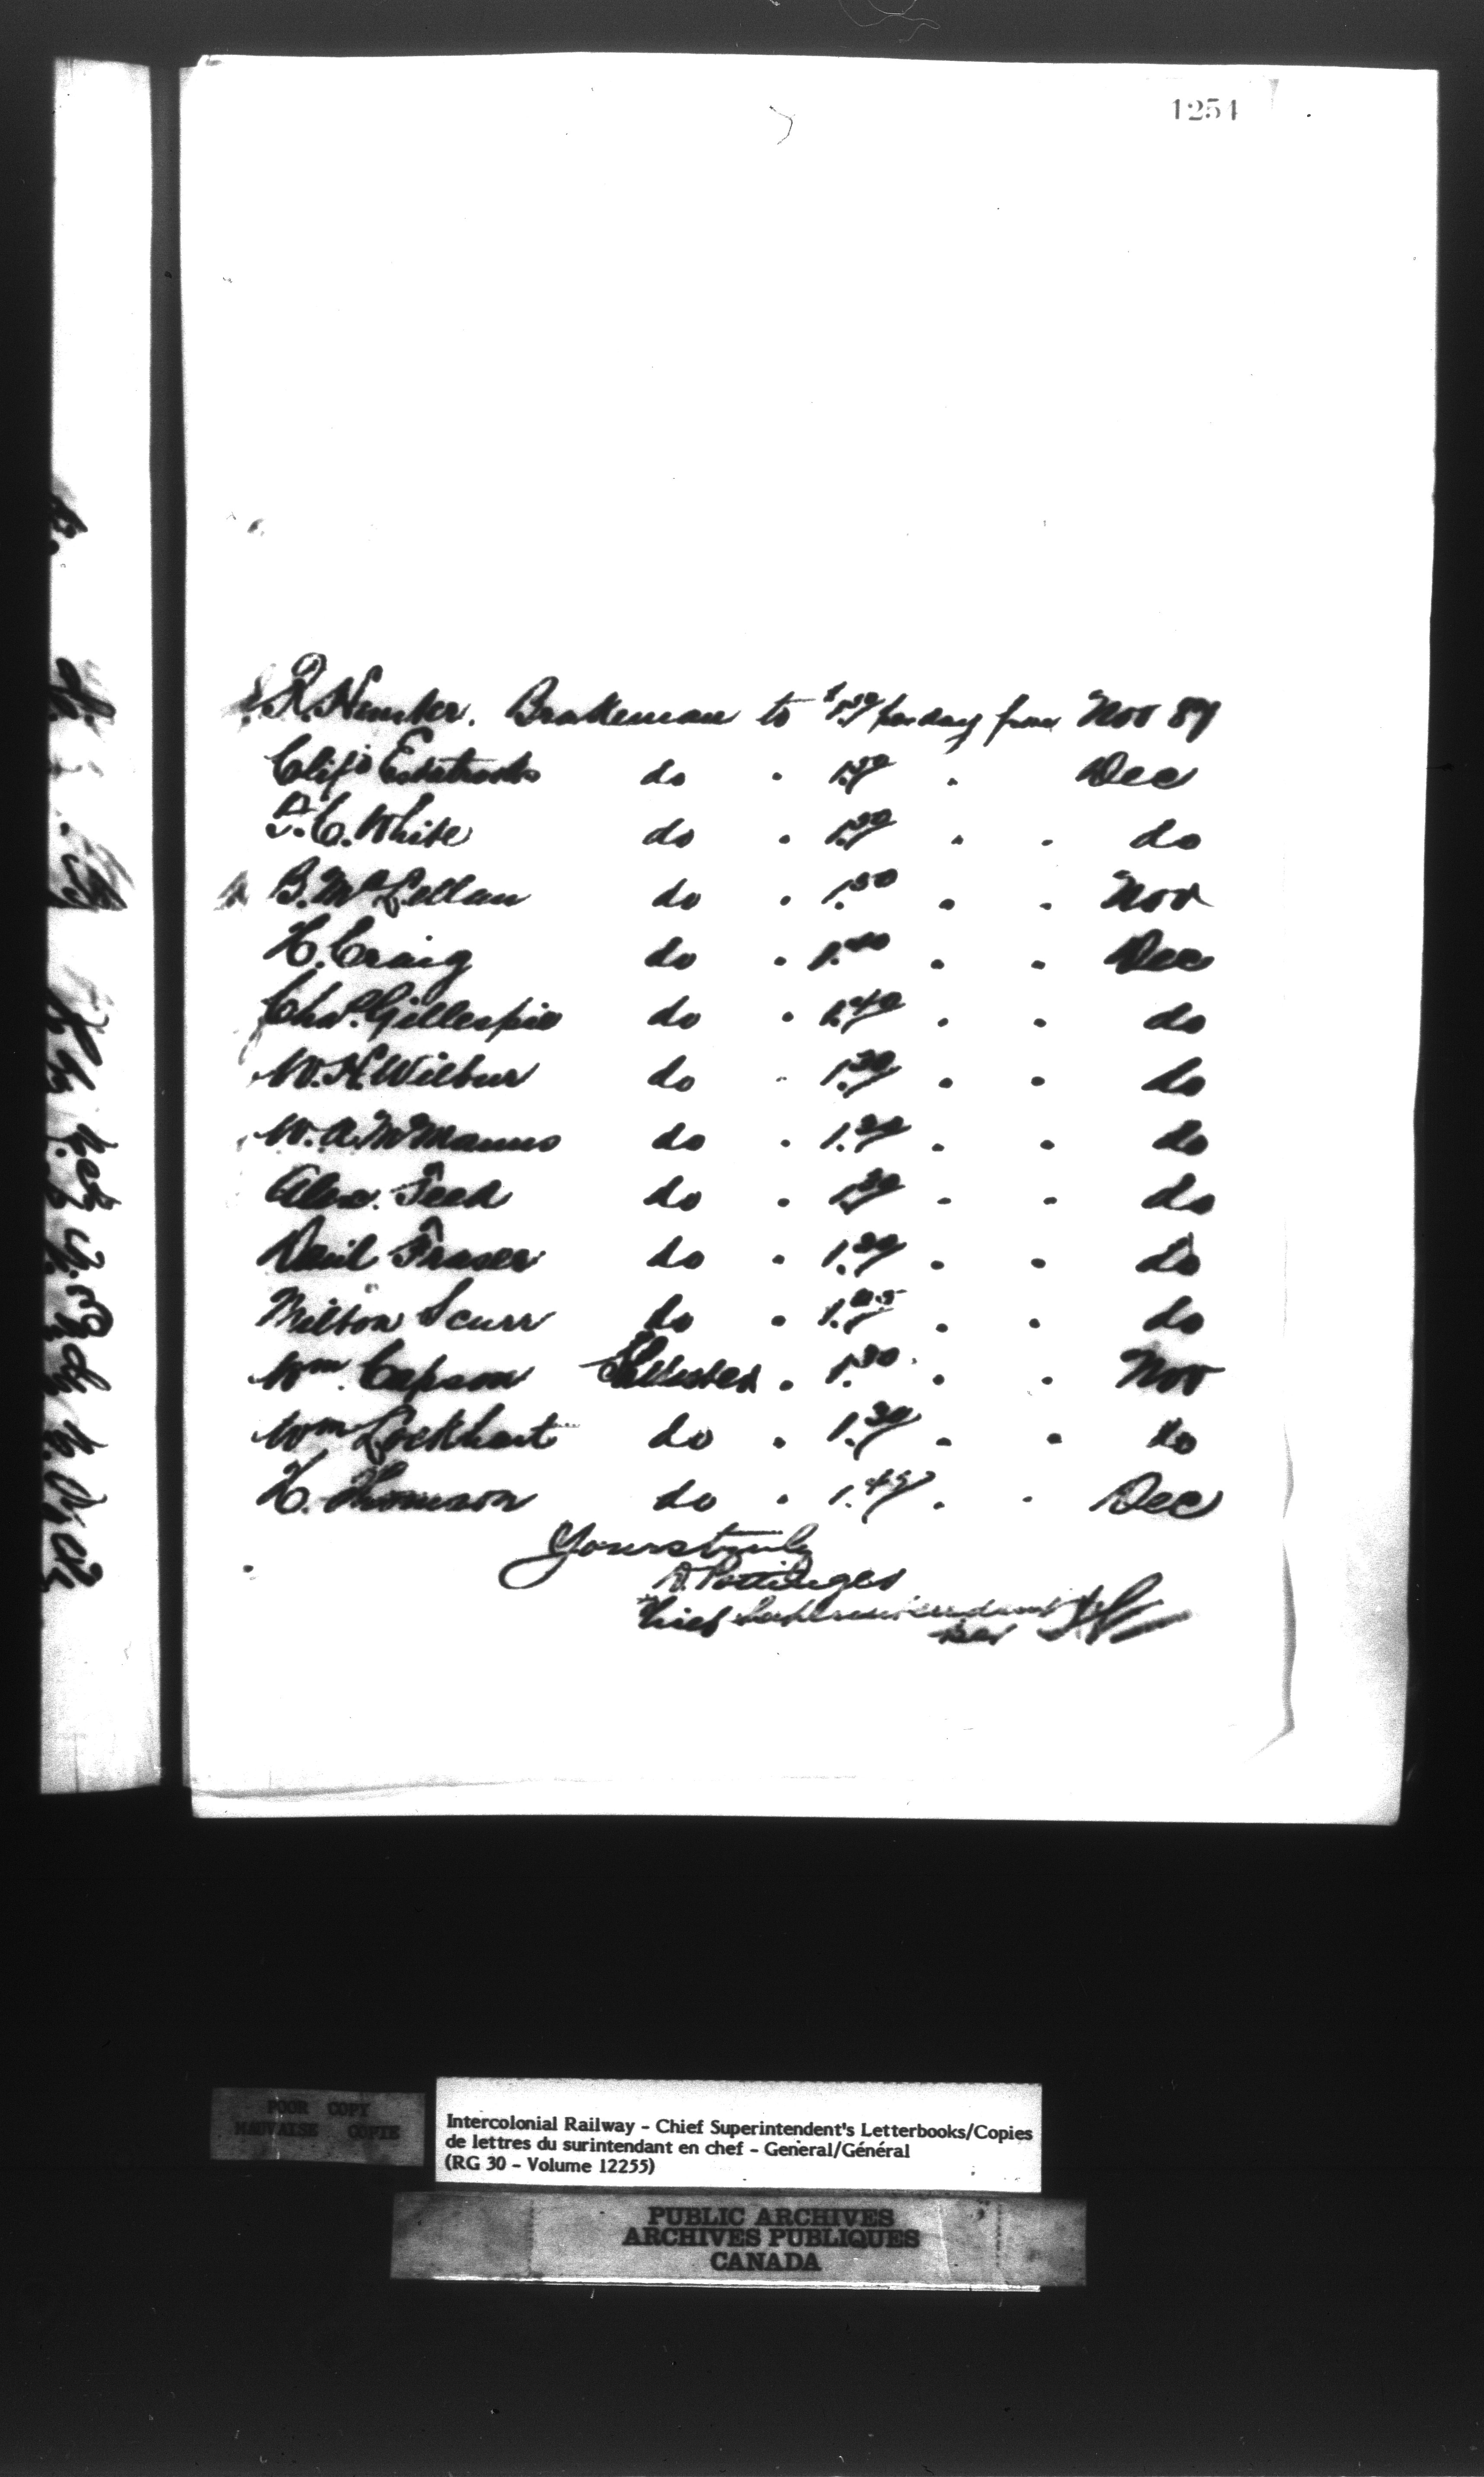 1254
R. Hunter. Brakeman to $1.30 per day from Nov 87
Clif'd Estabrooks do . 1.30 . Dec
F. C. White do . 1.30 . . do
B. McLellan do . 1.50 . . Nov
H. Craig do . 1. . . Dec
Chas. Gillespie do . 1.40 . . do
W. H. Wilbur do . 1.30 . . do
W. A. McManus do . 1.30 . . do
Alex. Feed do . 1.30 . . do
Neil Fraser do . 1.30 . . do
Milton Scurr do . 1. . . do
Wm. Capson . 1.30 . . Nov
Wm Lockhart do . 1.30 . . do
H. Thomson do . 1.45 . . Dec
Yours truly
D. Pottinger
Chief Superintendent
per
POOR COPY
MAUVAISE COPIE
Intercolonial Railway - Chief Superintendent's Letterbooks/Copies
de lettres du surintendant en chef - General/Général
(RG 30 - Volume 12255)
PUBLIC ARCHIVES
ARCHIVES PUBLIQUES
CANADA